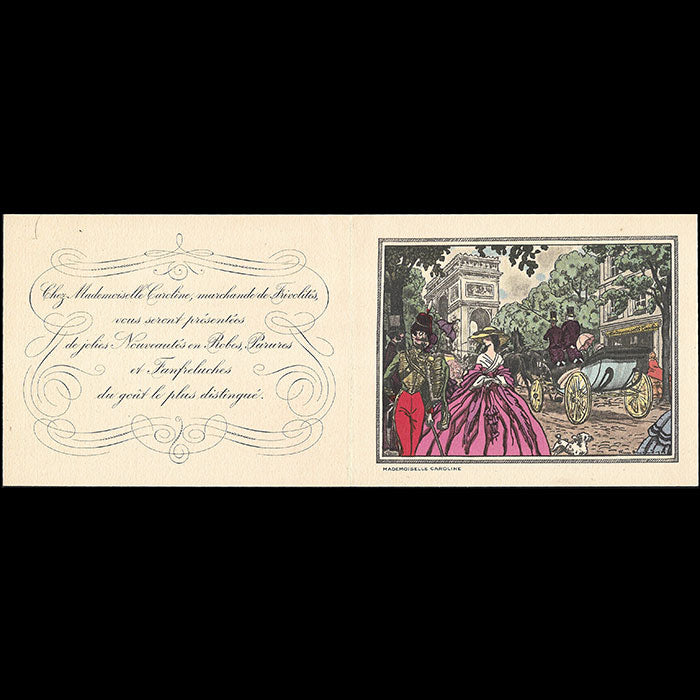 Chez Mademoiselle Caroline, marchande de Frivolités,
vous seront présentées
de jolies Nouveautés en Robes, Parures
et Fanfreluches
du goût le plus distingué.
MADEMOISELLE CAROLINE